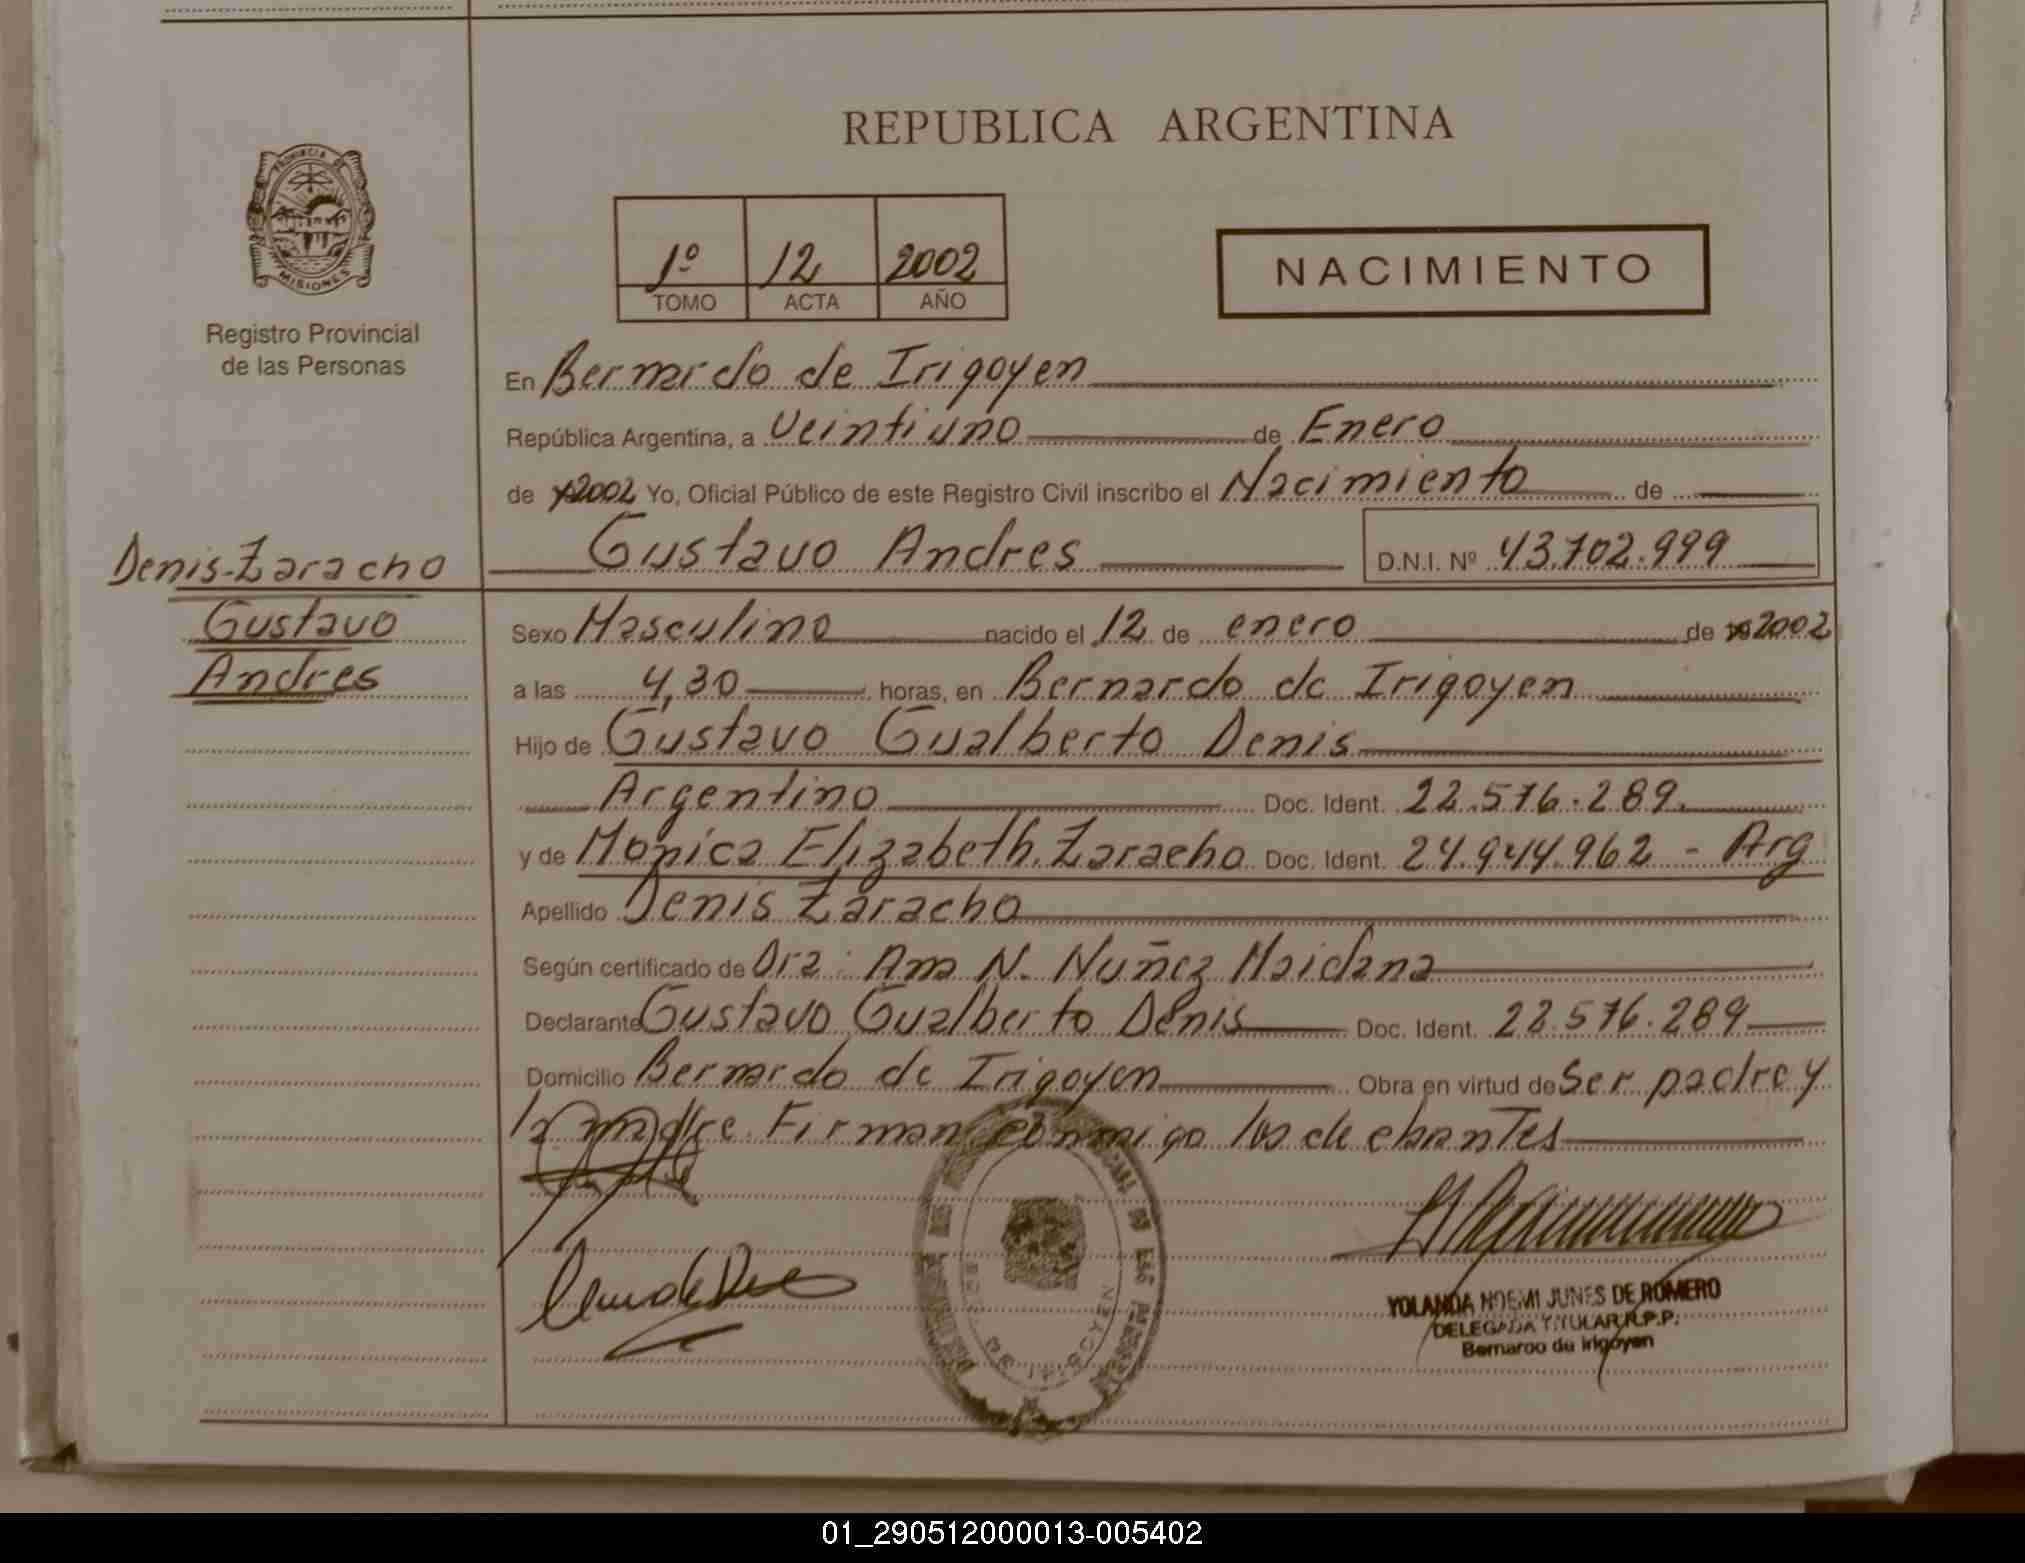 REPUBLICA ARGENTINA
PROVINCIA DE
MISIONES
Registro Provincial
de las Personas
1º 12 2002
TOMO ACTA AÑO
NACIMIENTO
En Bernardo de Irigoyen
República Argentina, a Veintiuno de Enero
de 2002 Yo, Oficial Público de este Registro Civil inscribo el Nacimiento de
Gustavo Andres D.N.I. Nº 43.702.999
Denis-Zaracho
Gustavo
Andres
Sexo Masculino nacido el 12 de enero de 2002
a las 4,30 horas, en Bernardo de Irigoyen
Hijo de Gustavo Gualberto Denis
Argentino Doc. Ident. 22.576.289
y de Monica Elizabeth Zaracho Doc. Ident. 24.944.962 - Arg
Apellido Denis Zaracho
Según certificado de Dra: Ana N. Nuñez Maidana
Declarante Gustavo Gualberto Denis Doc. Ident. 22.576.289
Domicilio Bernardo de Irigoyen Obra en virtud de Ser padre y
la madre. Firman conmigo los
YOLANDA NOEMI JUNES DE ROMERO
DELEGADA TITULAR R.P.P.
Bernardo de Irigoyen
01_290512000013-005402